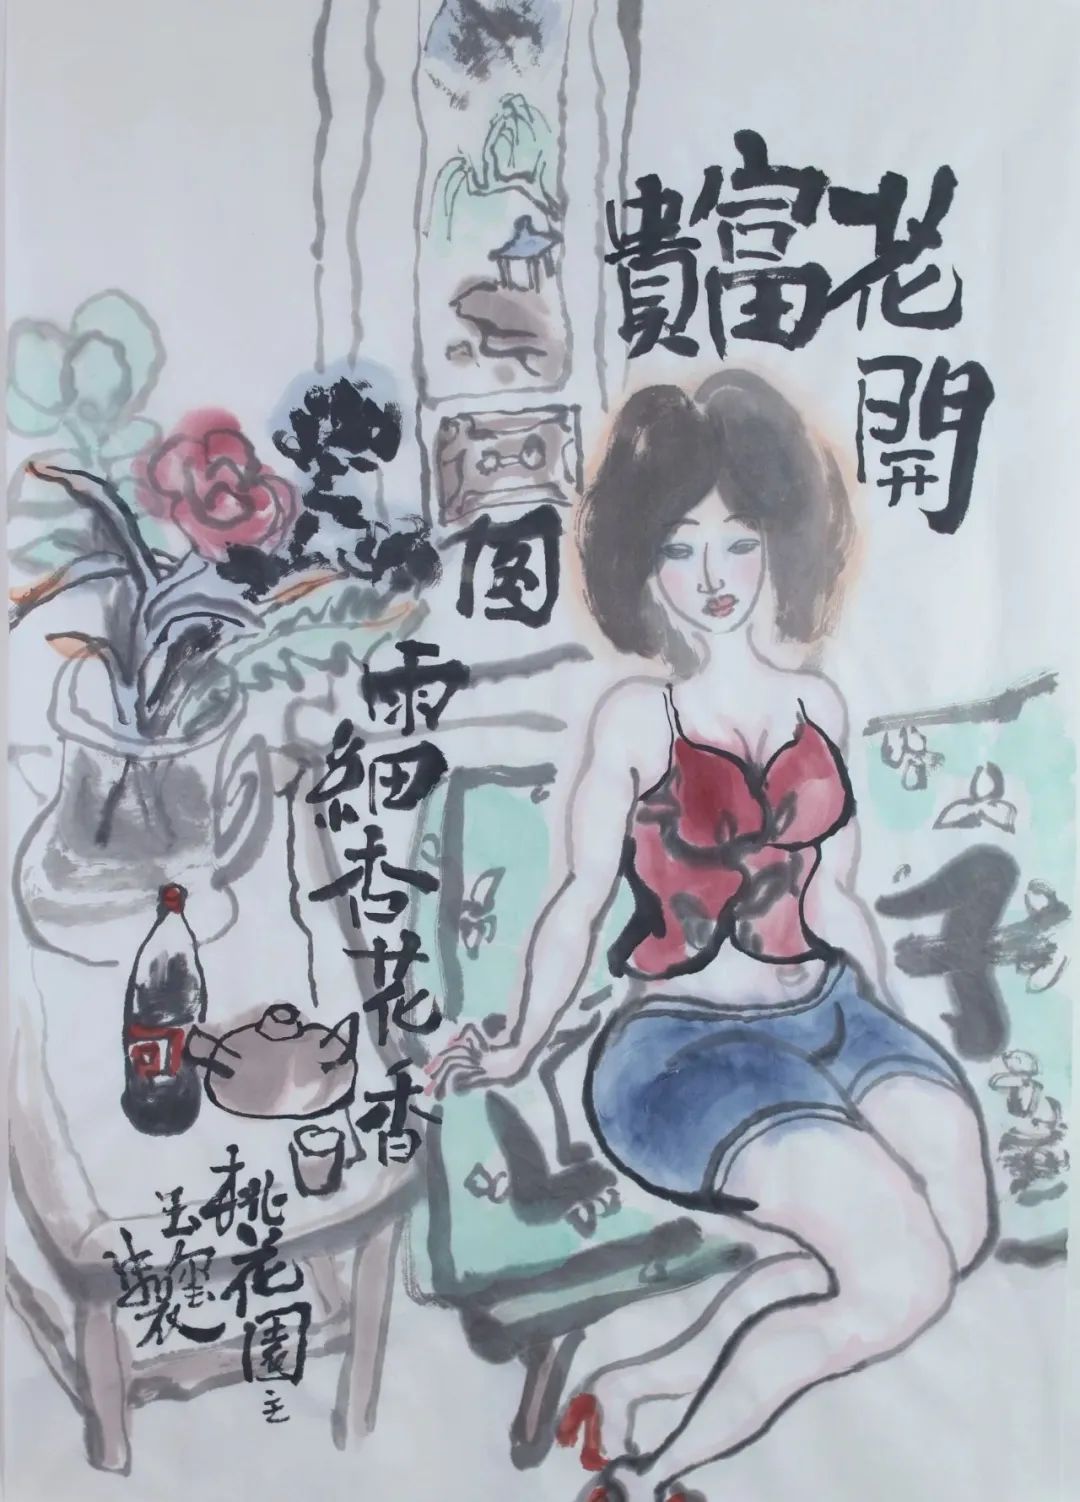 花開
富
貴
图
雨細杏花香
桃花園主
玉璽
製
可